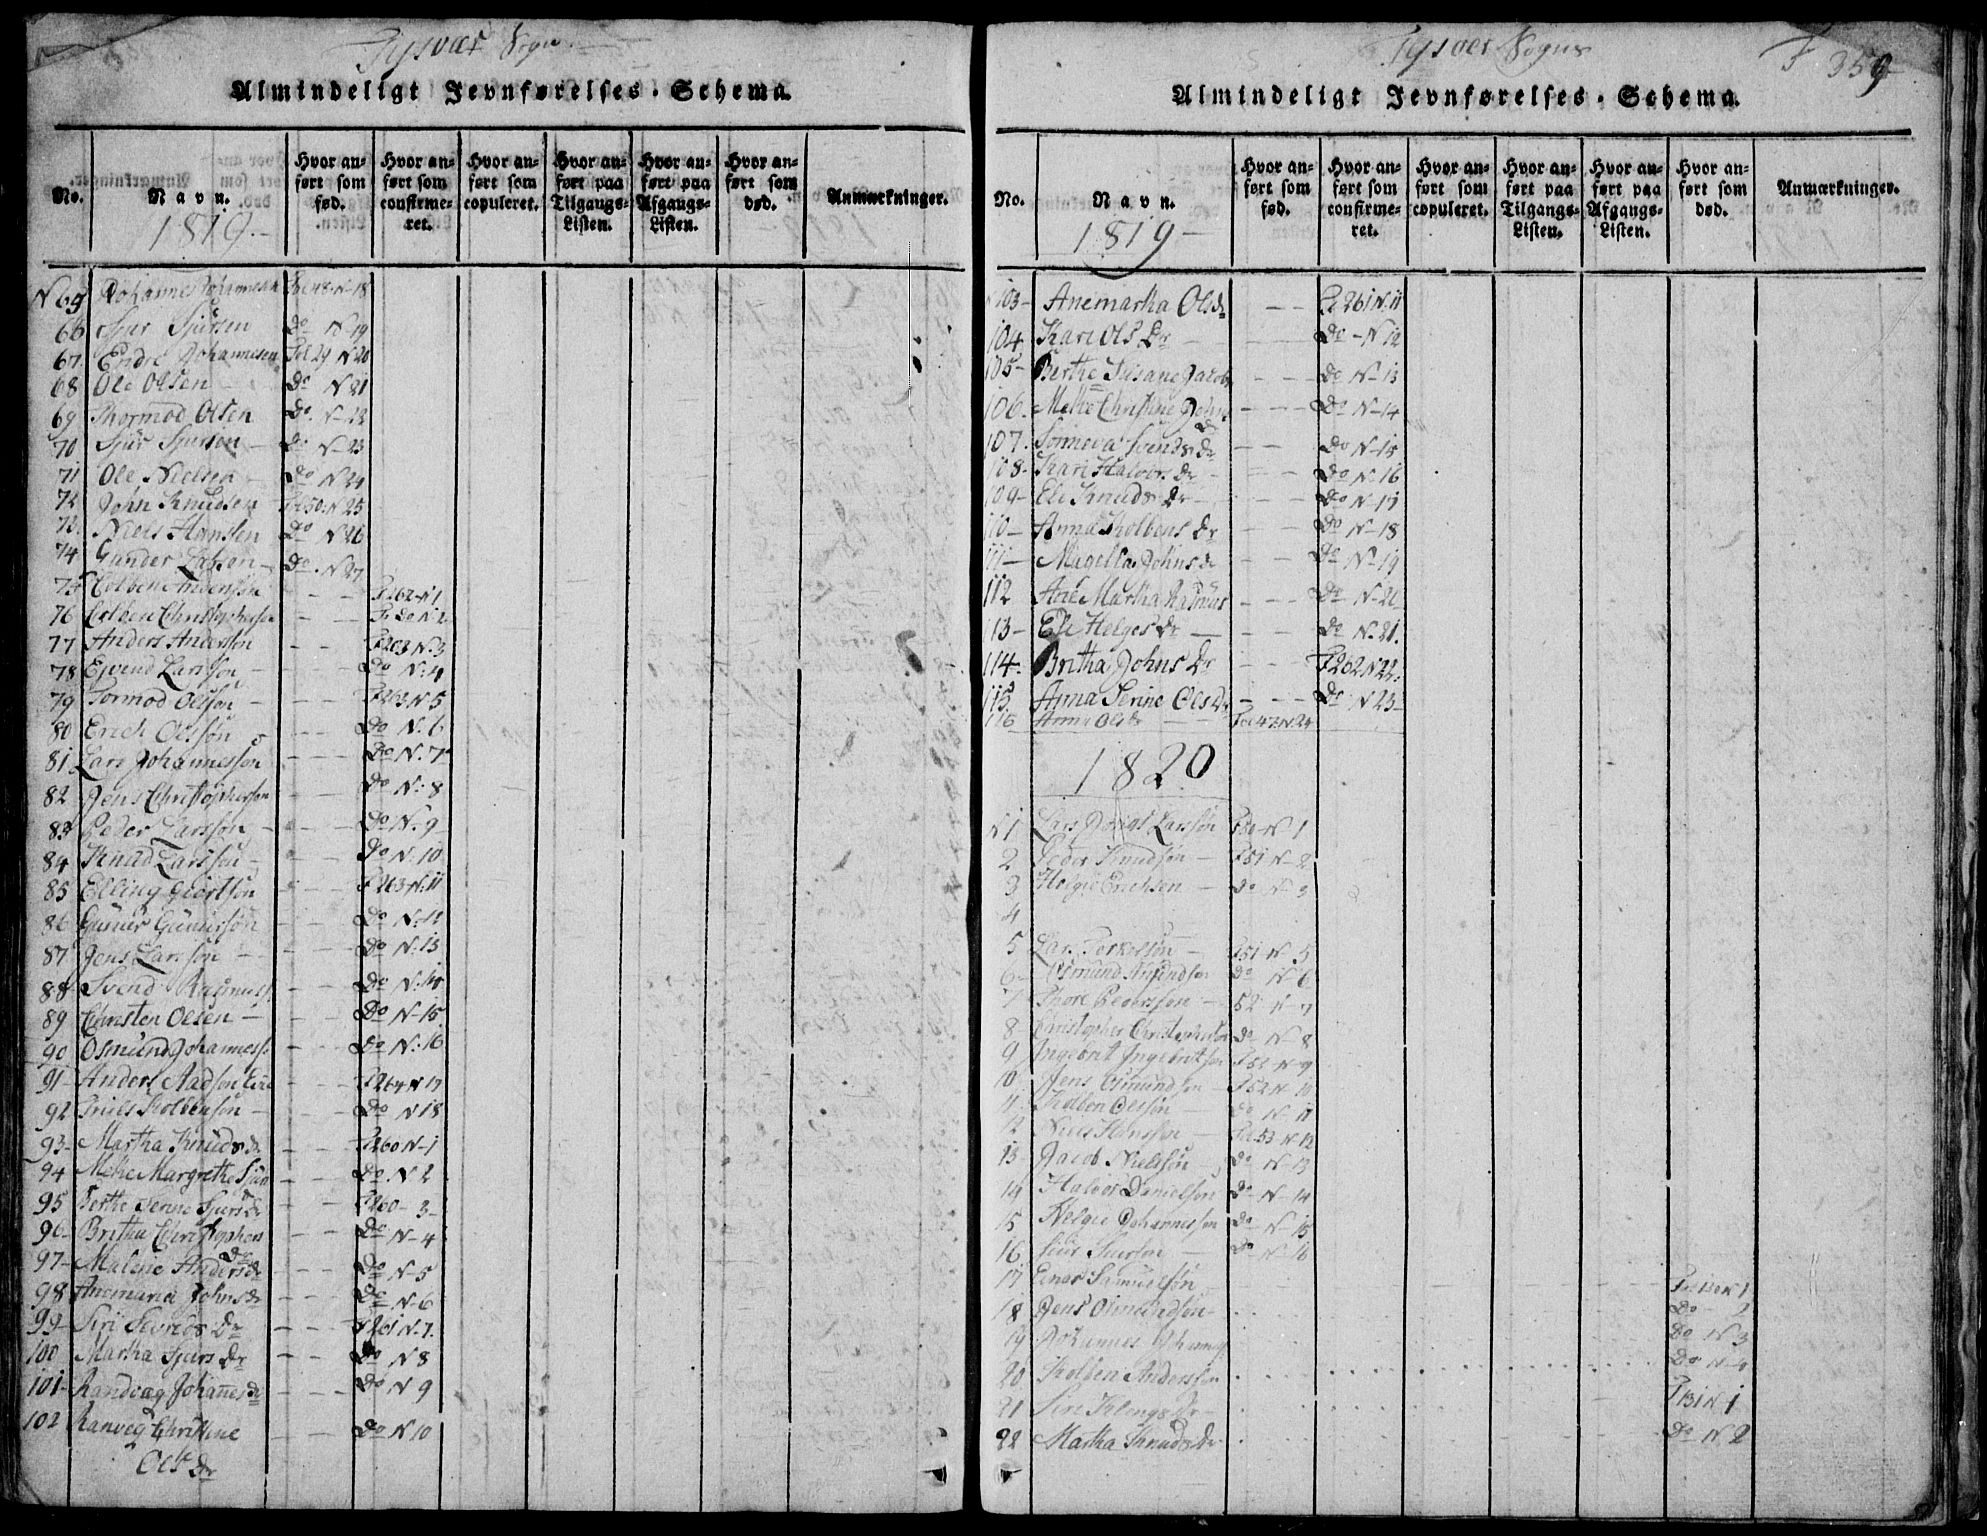 Tysvær Sogn
Almindeligt Jevnførelses-Schema.
No.
Navn.
Hvor anført som fød.
Hvor anført som confirmeret.
Hvor anført som copuleret.
Hvor anført paa Tilgangs-Listen.
Hvor anført paa Afgangs-Listen.
Hvor anført som død.
Anmærkninger.
1819.
Johannes Johannesen N 18
66 Sjur Sjursen Do N 19
67 Endre Johannesen Fol 29 N 20
68 Ole Olsen Do N 21
69 Thormod Olsen Do N 22
70 Sjur Sjursen Do N 23
71 Ole Nielsen Do N 24
72 John Knudsen Fol 50 N 25
Niels Hansen Do N 26
74 Gunder Larsen Do N 27
75 Colben Andersøn F 262 N 1
76 Colben Christophersen Do N 2
77 Anders Andersøn N 3
78 Ejvend Larsøn Do N 4
79 Tormod Olsøn F 263 N 5
80 Erich Olsøn Do N. 6
81 Lars Johannessøn Do N. 7
82 Jens Christophersøn Do N. 8
83 Peder Larssøn Do N. 9
84 Knud Larssøn Do N. 10
85 Elling Giertsøn F 263 N. 11
86 Gunner Gunnersøn Do N.
87 Jens Larssøn Do N. 13
88 Svend Rasmuss: Do N. 14
89 Christen Olsen Do N 15
90 Osmund Johanness: Do N. 16
91 Anders Aadsøn F 264 N 17
92 Niels Kolbensøn Do N 18
93 Martha Knudsdr F 260 N 1
94 Mette Margrethe Sjurs Do N 2
95 Berthe Serine Sjursdr F 260 3
96 Britha Christophers Dr Do N 4
97 Malene Andersdr Do N 5
98 Anemaria Johnsdr Do N 6
99 Siri Sivends Dr F 261 N. 7.
100 Martha Sjurs Dr Do N 8
101 Randvag Johannesdr Do N 9
102 Ranveg Christine Ols Dr Do N 10
Tysvær Sogns
F 359
Almindeligt Jevnførelses-Schema.
No.
Navn.
Hvor anført som fød.
Hvor anført som confirmeret.
Hvor anført som copuleret.
Hvor anført paa Tilgangs-Listen.
Hvor anført paa Afgangs-Listen.
Hvor anført som død.
Anmærkninger.
1819
103 Anemartha Olsdr F 261 N. 11
104 Kari Ols Dr Do N 12
105 Berthe Susane Jacobs Do N 13
106 Mette Christine Johns Dr Do N 14
107. Sonneva Svends dr Do N 15
108 Kari Halvors. dr Do N 16
109 Eli Knuds Dr Do N 17
110 Anna Kolbens Dr Do N 18
111 Magella Johnsdr Do N 19
112 Ane Martha Rasmus Do N 20
113 Eli Helges Dr Do N. 21.
114 Britha Johns Dr F 262 N 22.
115 Anna Serine Ols Dr Do N 23
116 Anna Olsdr Fol 43 N. 24
1820
N 1 Lars Larssøn F 50 N 1
2 Peder Knudsøn F 51 N 2
3 Helgie Erichsen Do N 3
4
5 Lars Torkelsøn F 51 N 5
6 Osmund Do N 6
7 Thore Pedersøn 52 N 7
8 Christopher Christophersøn Do N 8
9 Ingebret Ingebretsøn F 52 N 9
10 Jens Osmundsøn F 52 N 10
11 Kolben Olsøn Do N 11
12 Niels Hansøn Fol 53 N 12
13 Jacob Nielsøn Do N 13
14 Halvor Danielsøn Do N 14
15 Helgie Johannessøn Do N 15
16 Siur Siursøn Do N 16
17 Einar Samuelsøn N 1
18 Jens Osmundsøn Do 2
19 Johannes Do N 3
20 Kolben Andersøn Do N 4
21 Siri Dr F 131 N 1
22 Martha Knudsdr Do N 2